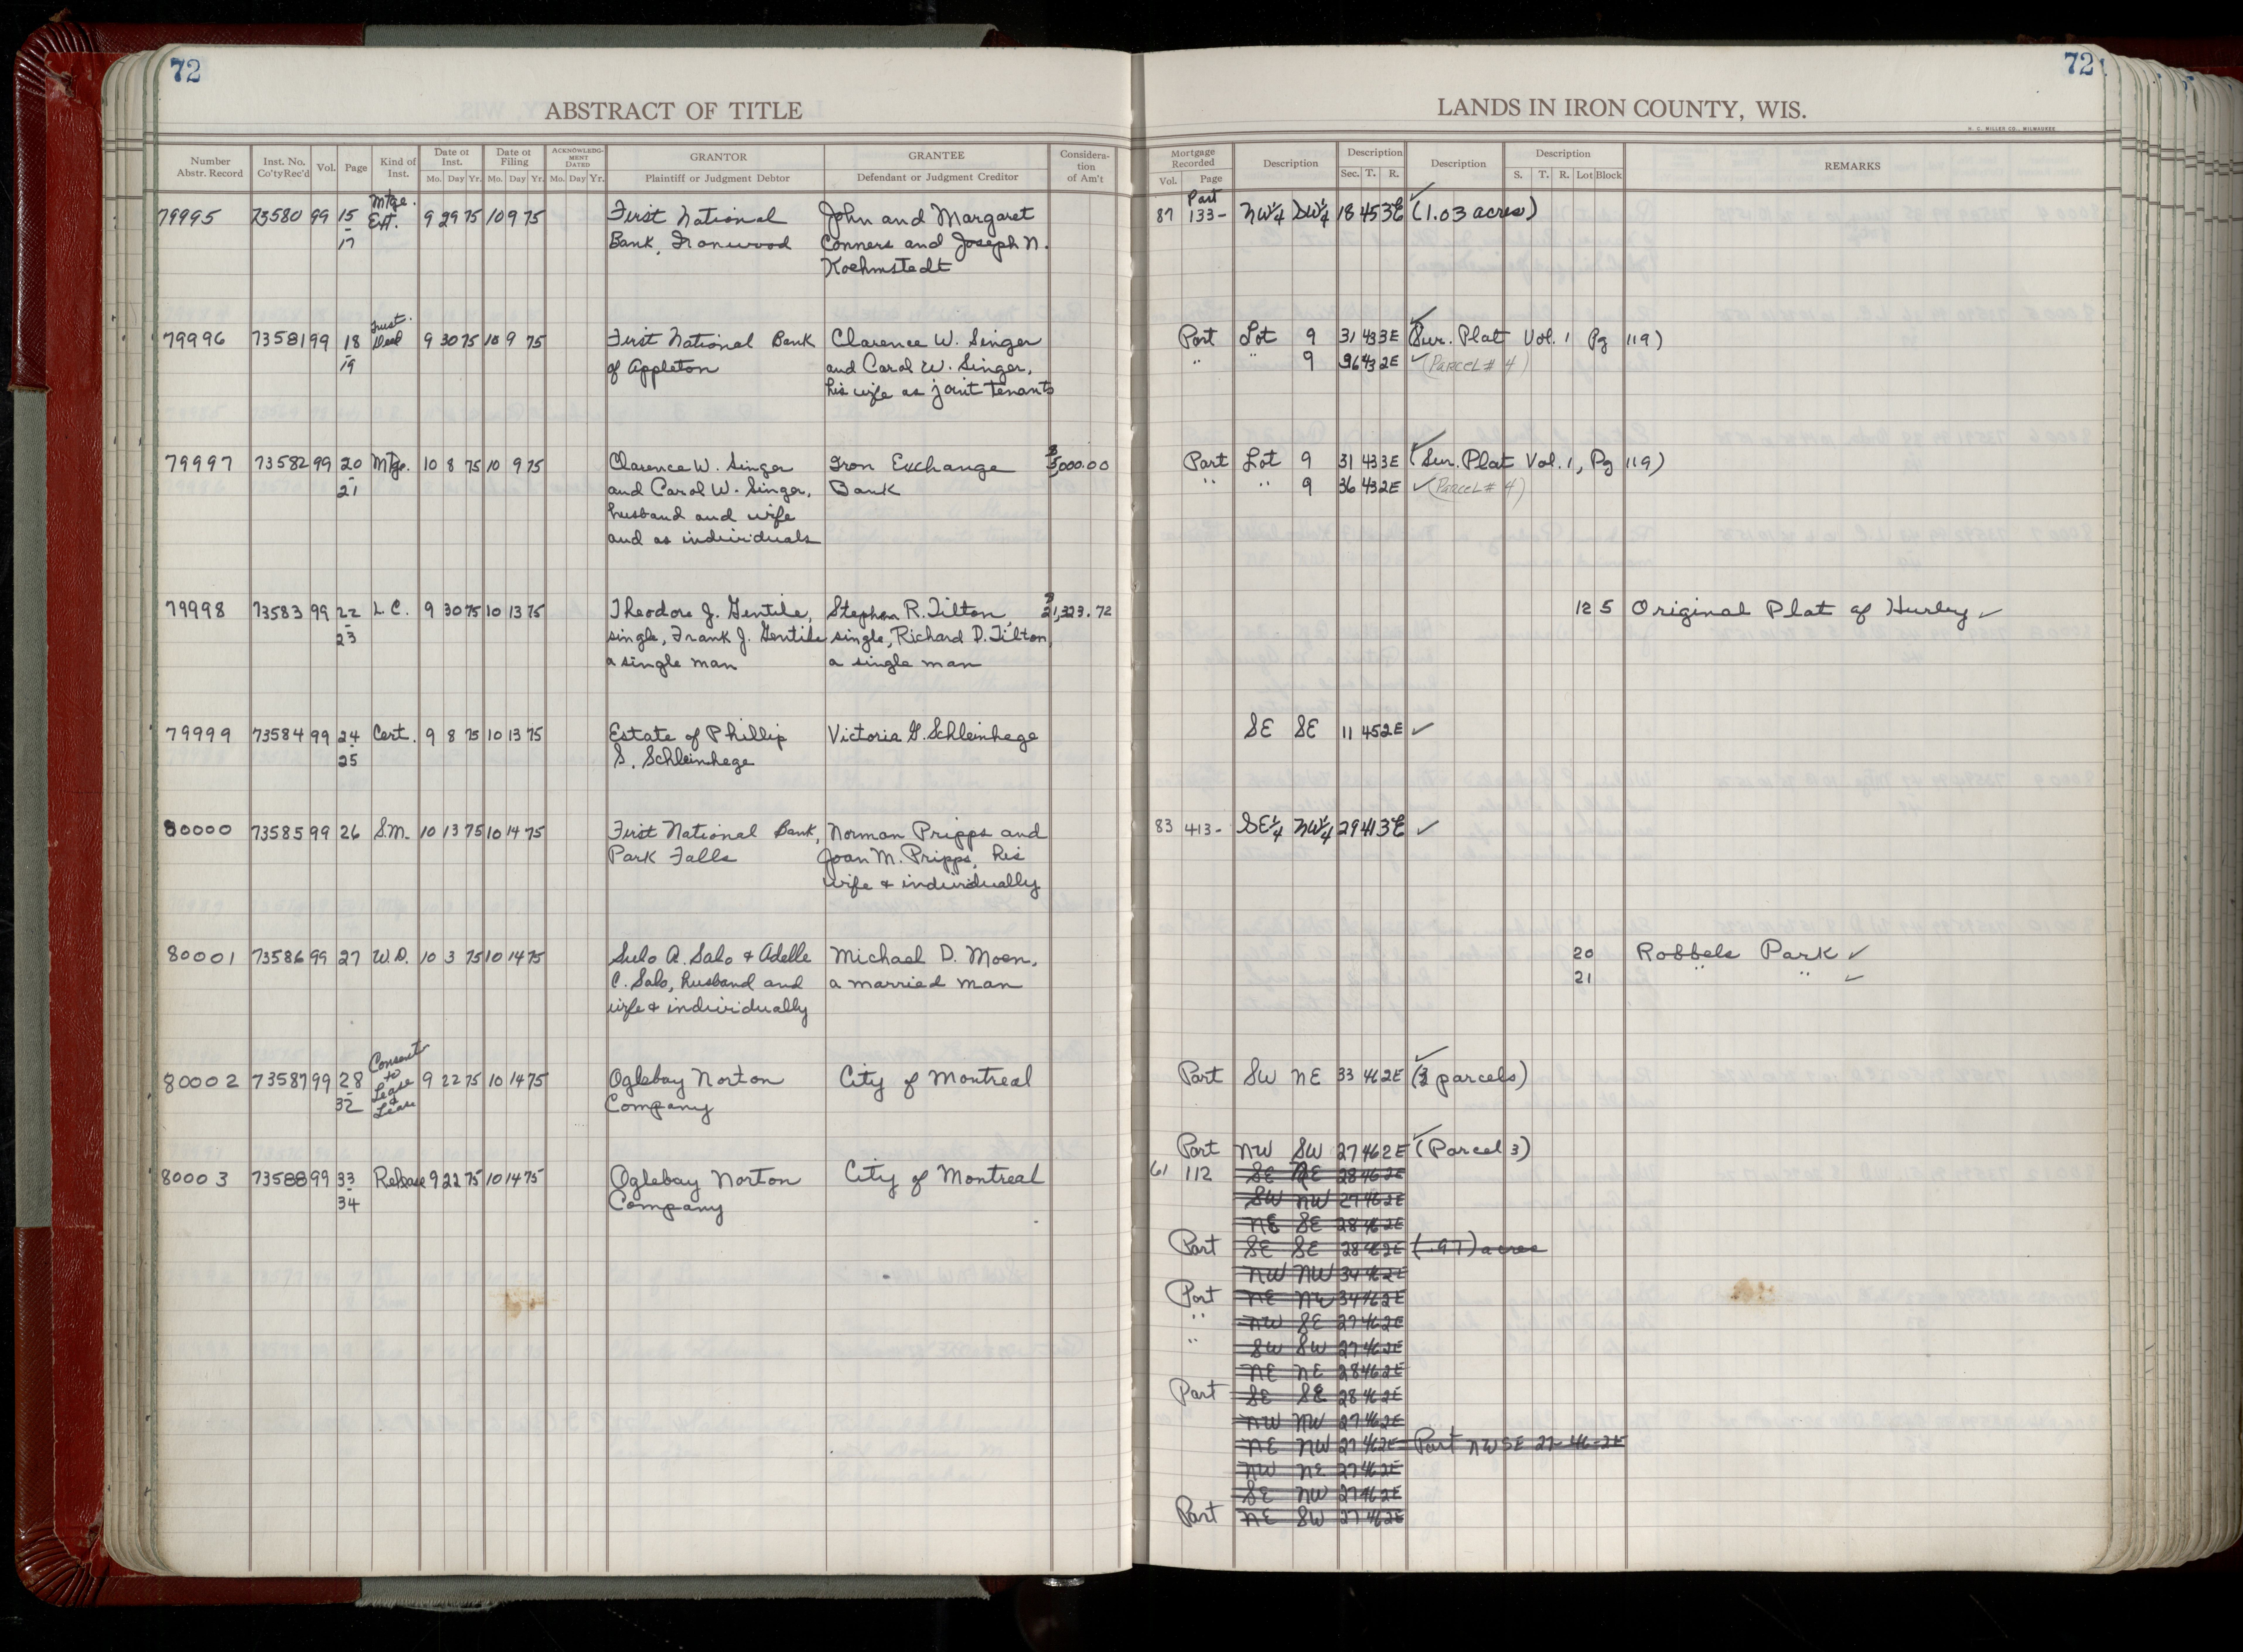 72
ABSTRACT OF TITLE
Number Abstr. Record Inst. No. Co'ty Rec'd Vol. Page Kind of Inst. Date of Inst. Mo. Day Yr. Date of Filing Mo. Day Yr. ACKNOWLEDGMENT DATED Mo. Day Yr. GRANTOR Plaintiff or Judgment Debtor GRANTEE Defendant or Judgment Creditor Consideration of Am't
79995 73580 99 15 Mtge. Ext. 9 29 75 10 9 75 First National John and Margaret
- 17 Bank, Ironwood Conners and Joseph N.
Koehmstedt
79996 73581 99 18 Trust Deed 9 30 75 10 9 75 First National Bank Clarence W. Singer
- 19 of Appleton and Carol W. Singer,
his wife as joint tenants
79997 73582 99 20 Mtge. 10 8 75 10 9 75 Clarence W. Singer Iron Exchange 000.00
- 21 and Carol W. Singer, Bank
husband and wife
and as individuals
79998 73583 99 22 L.C. 9 30 75 10 13 75 Theodore J. Gentile, Stephen R. Tilton, 21,323.72
- 23 single, Frank J. Gentile single, Richard D. Tilton,
a single man a single man
79999 73584 99 24 Cert. 9 8 75 10 13 75 Estate of Phillip Victoria G. Schleinhege
- 25 S. Schleinhege
80000 73585 99 26 S.M. 10 13 75 10 14 75 First National Bank, Norman Pripps and
Park Falls Joan M. Pripps, his
wife & individually
80001 73586 99 27 W.D. 10 3 75 10 14 75 Sulo A. Salo & Adelle Michael D. Moen,
C. Salo, husband and a married man
wife & individually
80002 73587 99 28 Consent to Lease & Lease 9 22 75 10 14 75 Oglebay Norton City of Montreal
- 32 Company
80003 73588 99 33 Release 9 22 75 10 14 75 Oglebay Norton City of Montreal
- 34 Company
72
LANDS IN IRON COUNTY, WIS.
H. C. MILLER CO., MILWAUKEE
Mortgage Recorded Vol. Page Description Description Sec. T. R. Description Description S. T. R. Lot Block REMARKS
Part
87 133- NW¼ SW¼ 18 45 3E (1.03 acres)
Part Lot 9 31 43 3E (Sur. Plat Vol. 1 Pg 119)
" 9 36 43 2E ✓ (PARCEL # 4)
Part Lot 9 31 43 3E (Sur. Plat Vol. 1, Pg 119)
" " 9 36 43 2E ✓ (PARCEL # 4)
12 5 Original Plat of Hurley ✓
SE SE 11 45 2E ✓
83 413- SE¼ NW¼ 29 41 3E ✓
20 Robbels Park ✓
21 " ✓
Part SW NE 33 46 2E (3 parcels)
Part NW SW 27 46 2E (Parcel 3)
61 112 SE NE 28 46 2E
SW NW 27 46 2E
NE SE 28 46 2E
Part SE SE 28 46 2E (.97) acres
NW NW 34 46 2E
Part NE NW 34 46 2E
" NW SE 27 46 2E
" SW SW 27 46 2E
NE NE 28 46 2E
Part SE SE 28 46 2E
NW NW 27 46 2E
NE NW 27 46 2E Part NW SE 27 46 2E
NW NE 27 46 2E
SE NW 27 46 2E
Part NE SW 27 46 2E